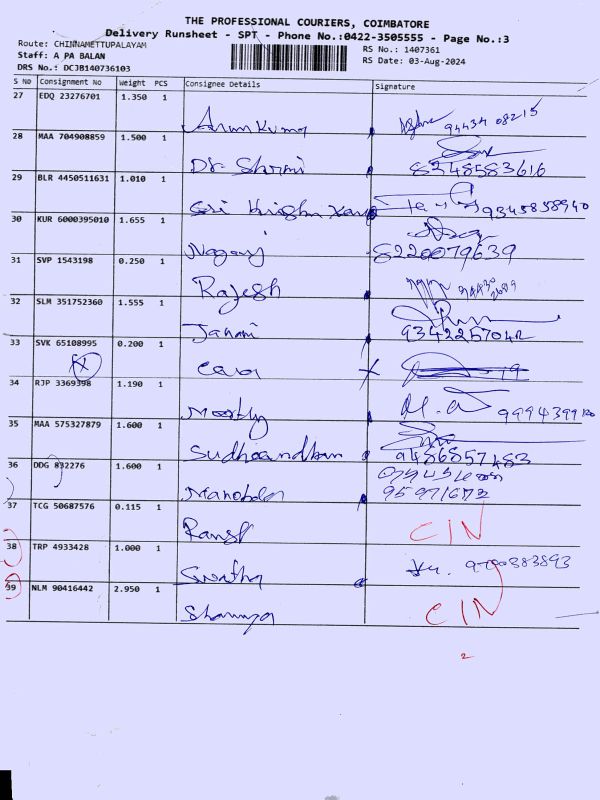 THE PROFESSIONAL COURIERS, COIMBATORE
Delivery Runsheet - SPT - Phone No.:0422-3505555 - Page No.:3
Route: CHINNAMETTUPALAYAM RS No.: 1407361
Staff: A PA BALAN RS Date: 03-Aug-2024
DRS No.: DCJB140736103
S No Consignment No Weight PCS Consignee Details Signature
27 EDQ 23276701 1.350 1
Arun Kumar 94434 08215
28 MAA 704908859 1.500 1
Dr. Shrni 8348583616
29 BLR 4450511631 1.010 1
Sri 9345858940
30 KUR 6000395010 1.655 1
Nagaraj 8220079639
31 SVP 1543198 0.250 1
Rajesh
32 SLM 351752360 1.555 1
Janani
33 SVK 65108995 0.200 1
34 RJP 3369398 1.190 1
Moorthy M.
35 MAA 575327879 1.600 1
9486857483
36 DDG 832276 1.600 1
37 TCG 50687576 0.115 1
CIN
38 TRP 4933428 1.000 1
Swatha 9790383893
39 NLM 90416442 2.950 1
CIN
2